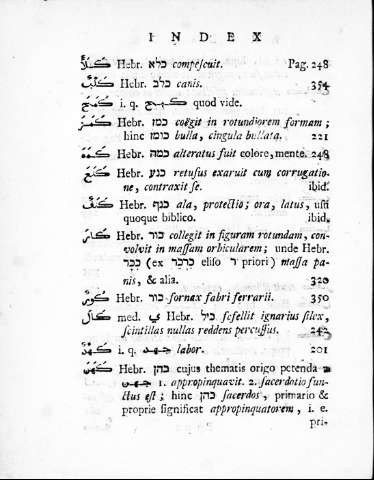 INDEX
كَلَأَ Hebr. כלא compescuit. Pag. 248
كَلْبٌ Hebr. כלב canis. 354
كَمَحَ i. q. كبح quod vide.
كَمَزَ Hebr. כמז coëgit in rotundiorem formam;
hinc כומז bulla, cingula bullata. 221
كَمِهَ Hebr. כמה alteratus fuit colore, mente. 248
كَنَعَ Hebr. כנע retusus exaruit cum corrugatio-
ne, contraxit se. ibid.
كَنَفٌ Hebr. כנף ala, protectio; ora, latus, usu
quoque biblico. ibid.
كَارَ Hebr. כור collegit in figuram rotundam, con-
volvit in massam orbicularem; unde Hebr.
כִּכָּר (ex כִּרְכָּר eliso ר priori) massa pa-
nis, & alia. 320
كُورٌ Hebr. כור fornax fabri ferrarii. 350
كَالَ med. ي Hebr. כיל fefellit ignarius silex,
scintillas nullas reddens percussus. 242
كَهْدٌ i. q. جهد labor. 201
كَهَنَ Hebr. כהן cujus thematis origo petenda a
1. appropinquavit. 2. sacerdotio fun-
ctus est; hinc כהן sacerdos, primario &
proprie significat appropinquatorem, i. e.
pri-